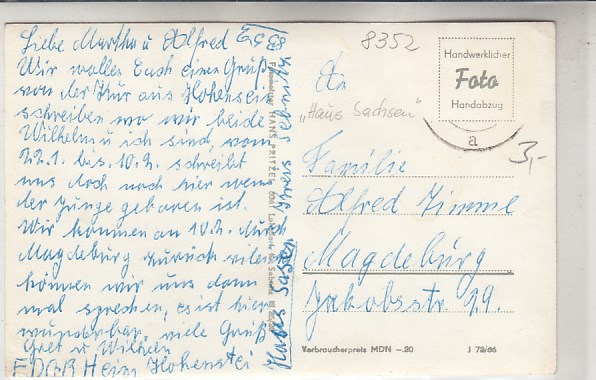 Liebe Martha u Alfred
Wir wollen Euch einen Gruß
von der Kur aus Hohenstei
schreiben wo wir beide
Wilhelm u ich sind, vom
22.1. bis 10.2. schreibt
uns doch noch hier wenn
der Junge geboren ist.
Wir kommen am 10.2. durch
Magdeburg zurück vileich
können wir uns dann
mal sprechen, es ist hier
wunderbar, viele Grüß
Gret u Wilhelm
FDGB Heim Hohenstei
Kreis Sebnitz
HANS PRITZEL
8352
Handwerklicher
Foto
Handabzug
a
3,-
An
„Haus Sachsen"
Familie
Alfred Timme
Magdeburg
Jakobsstr. 29.
Verbraucherpreis MDN –.20